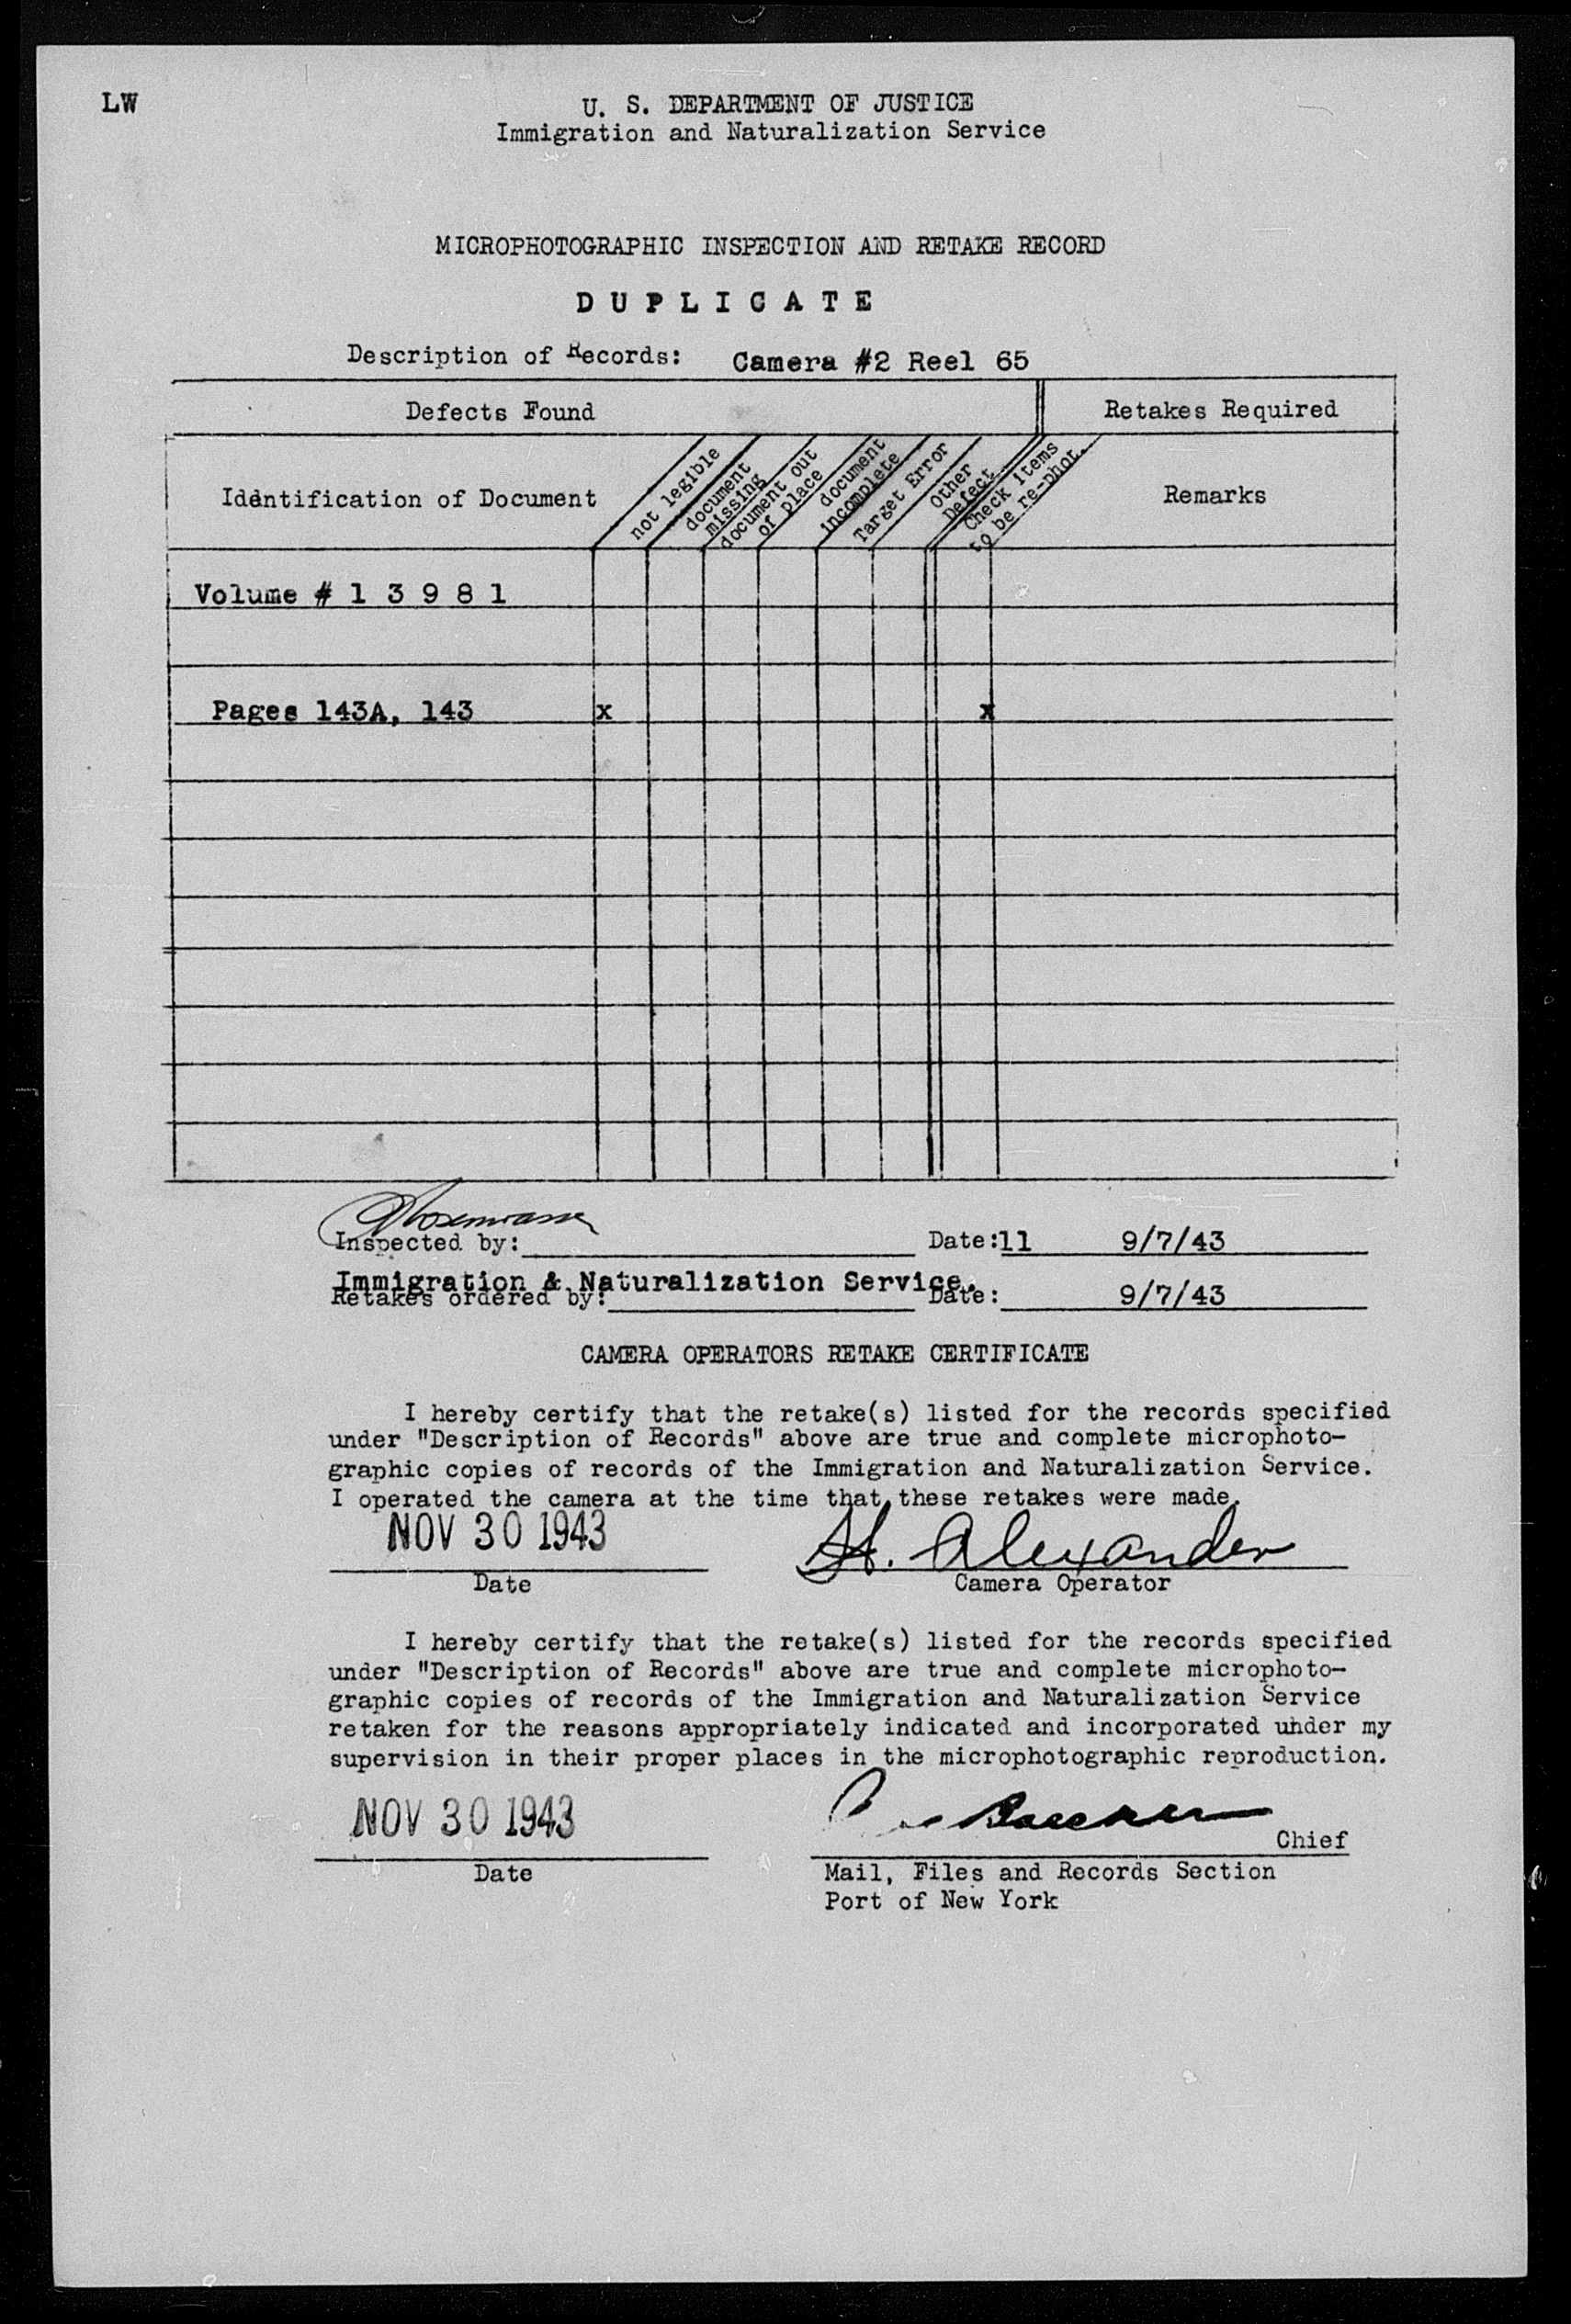 LW
U. S. DEPARTMENT OF JUSTICE
Immigration and Naturalization Service
MICROPHOTOGRAPHIC INSPECTION AND RETAKE RECORD
D U P L I C A T E
Description of Records: Camera #2 Reel 65
Defects Found
Retakes Required
Identification of Document
not legible
document
missing
document out
of place
document
incomplete
Target Error
Other
Defect
Check items
to be re-phot.
Remarks
Volume # 1 3 9 8 1
Pages 143A, 143 x x
Inspected by: Date:11 9/7/43
Immigration & Naturalization Service.
Retakes ordered by: Date: 9/7/43
CAMERA OPERATORS RETAKE CERTIFICATE
I hereby certify that the retake(s) listed for the records specified
under "Description of Records" above are true and complete microphoto-
graphic copies of records of the Immigration and Naturalization Service.
I operated the camera at the time that these retakes were made.
NOV 30 1943 H. Alexander
Date Camera Operator
I hereby certify that the retake(s) listed for the records specified
under "Description of Records" above are true and complete microphoto-
graphic copies of records of the Immigration and Naturalization Service
retaken for the reasons appropriately indicated and incorporated under my
supervision in their proper places in the microphotographic reproduction.
NOV 30 1943
Chief
Date Mail, Files and Records Section
Port of New York